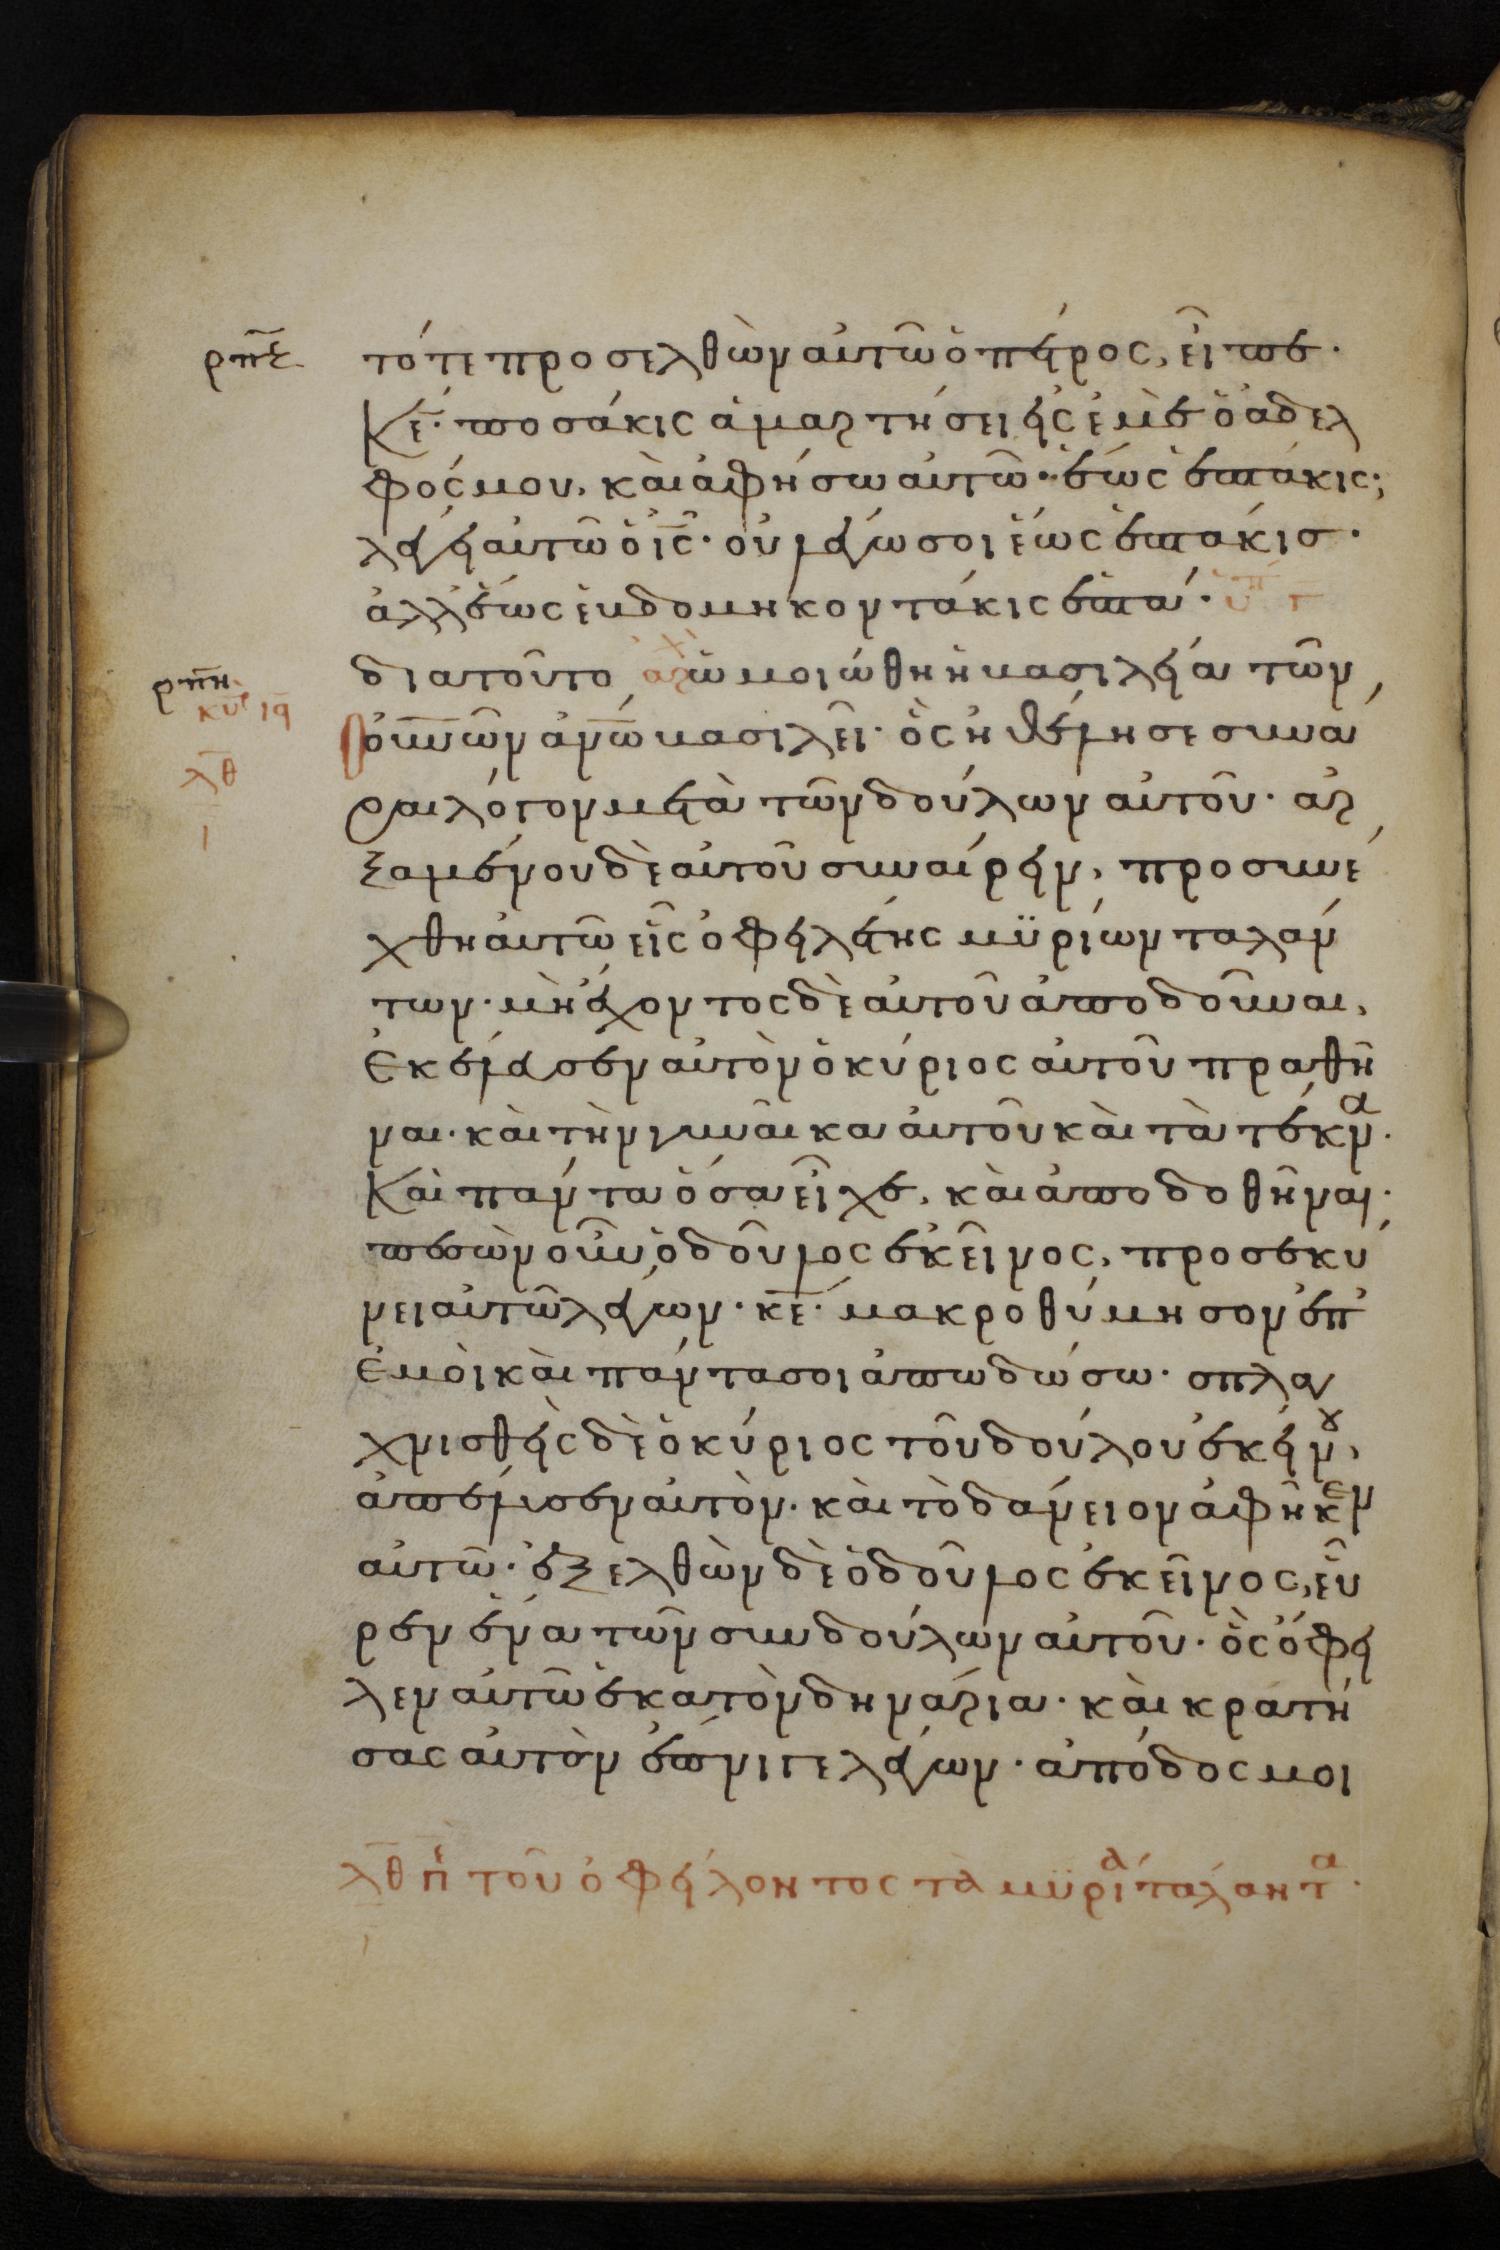 ρπζ τότε προσελθὼν αὐτῶ ὁ πέτρος, εἶπε·
Κε̄· ποσάκις ἁμαρτήσει εἰς ἐμὲ ὁ ἀδελ
φός μου, καὶ ἀφήσω αὐτῶ· ἕως ἑπτάκις;
λέγει αὐτῶ ὁ ις̄· οὐ λέγω σοι ἕως ἑπτάκισ·
ἀλλ' ἕως ἑβδομηκοντάκις ἑπτά·
ρπη διατοῦτο ὡμοιώθη ἡ βασιλεία τῶν
κυ ια
οὐνῶν ἀνω̄ βασιλεῖ· ὃς ἠθέλησε συνα
λθ
ραι λόγον μετὰ τῶν δούλων αὐτοῦ· ἀρ
ξαμένου δὲ αὐτοῦ συναίρειν, προσηνέ
χθη αὐτῶ εἷς ὀφειλέτης μϋρίων ταλάν
των· μὴ ἔχοντος δὲ αὐτοῦ ἀποδοῦναι,
ἐκέλευσεν αὐτὸν ὁ κύριος αὐτοῦ πραθῆ
ναι· καὶ τὴν γυναῖκα αὐτοῦ καὶ τὰ τέκνα·
Καὶ πάντα ὅσα εἶχε, καὶ ἀποδοθῆναι·
πεσὼν οὖν ὁ δοῦλος ἐκεῖνος, προσεκύ
νει αὐτῶ λέγων· κε̄· μακροθύμησον ἐπ'
ἐμοὶ καὶ πάντα σοι ἀπωδώσω· σπλαγ
χνισθεὶς δὲ ὁ κύριος τοῦ δούλου ἐκείνου,
ἀπέλυσεν αὐτὸν· καὶ τὸ δάνειον ἀφῆκεν
αὐτῶ· ἐξελθὼν δὲ ὁ δοῦλος ἐκεῖνος, εὗ
ρεν ἕνα τῶν συνδούλων αὐτοῦ· ὃς ὄφει
λεν αὐτῶ ἑκατὸν δηνάρια· καὶ κρατή
σας αὐτὸν ἔπνιγε λέγων· ἀπόδος μοι
λθ π τοῦ ὀφείλοντος τὰ μϋρία τάλαντα·